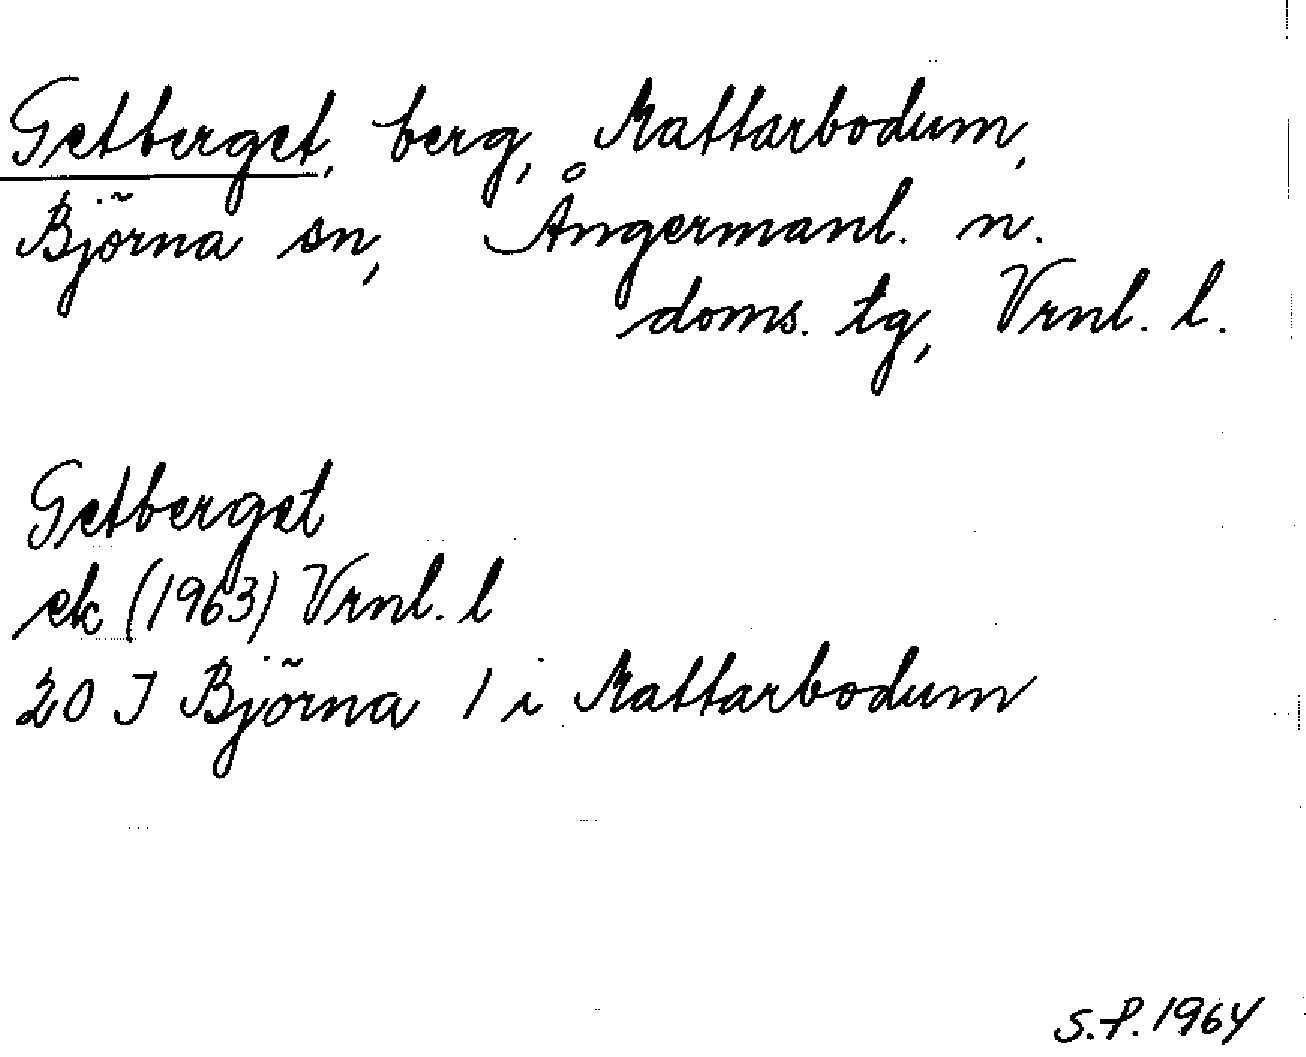 Getberget, berg, Mattarbodum,
Björna sn, Ångermanl. n.
doms. tg, Vrnl. l.
Getberget
ek (1963) Vrnl. l
20 J Björna 1 i Mattarbodum
S.P. 1964